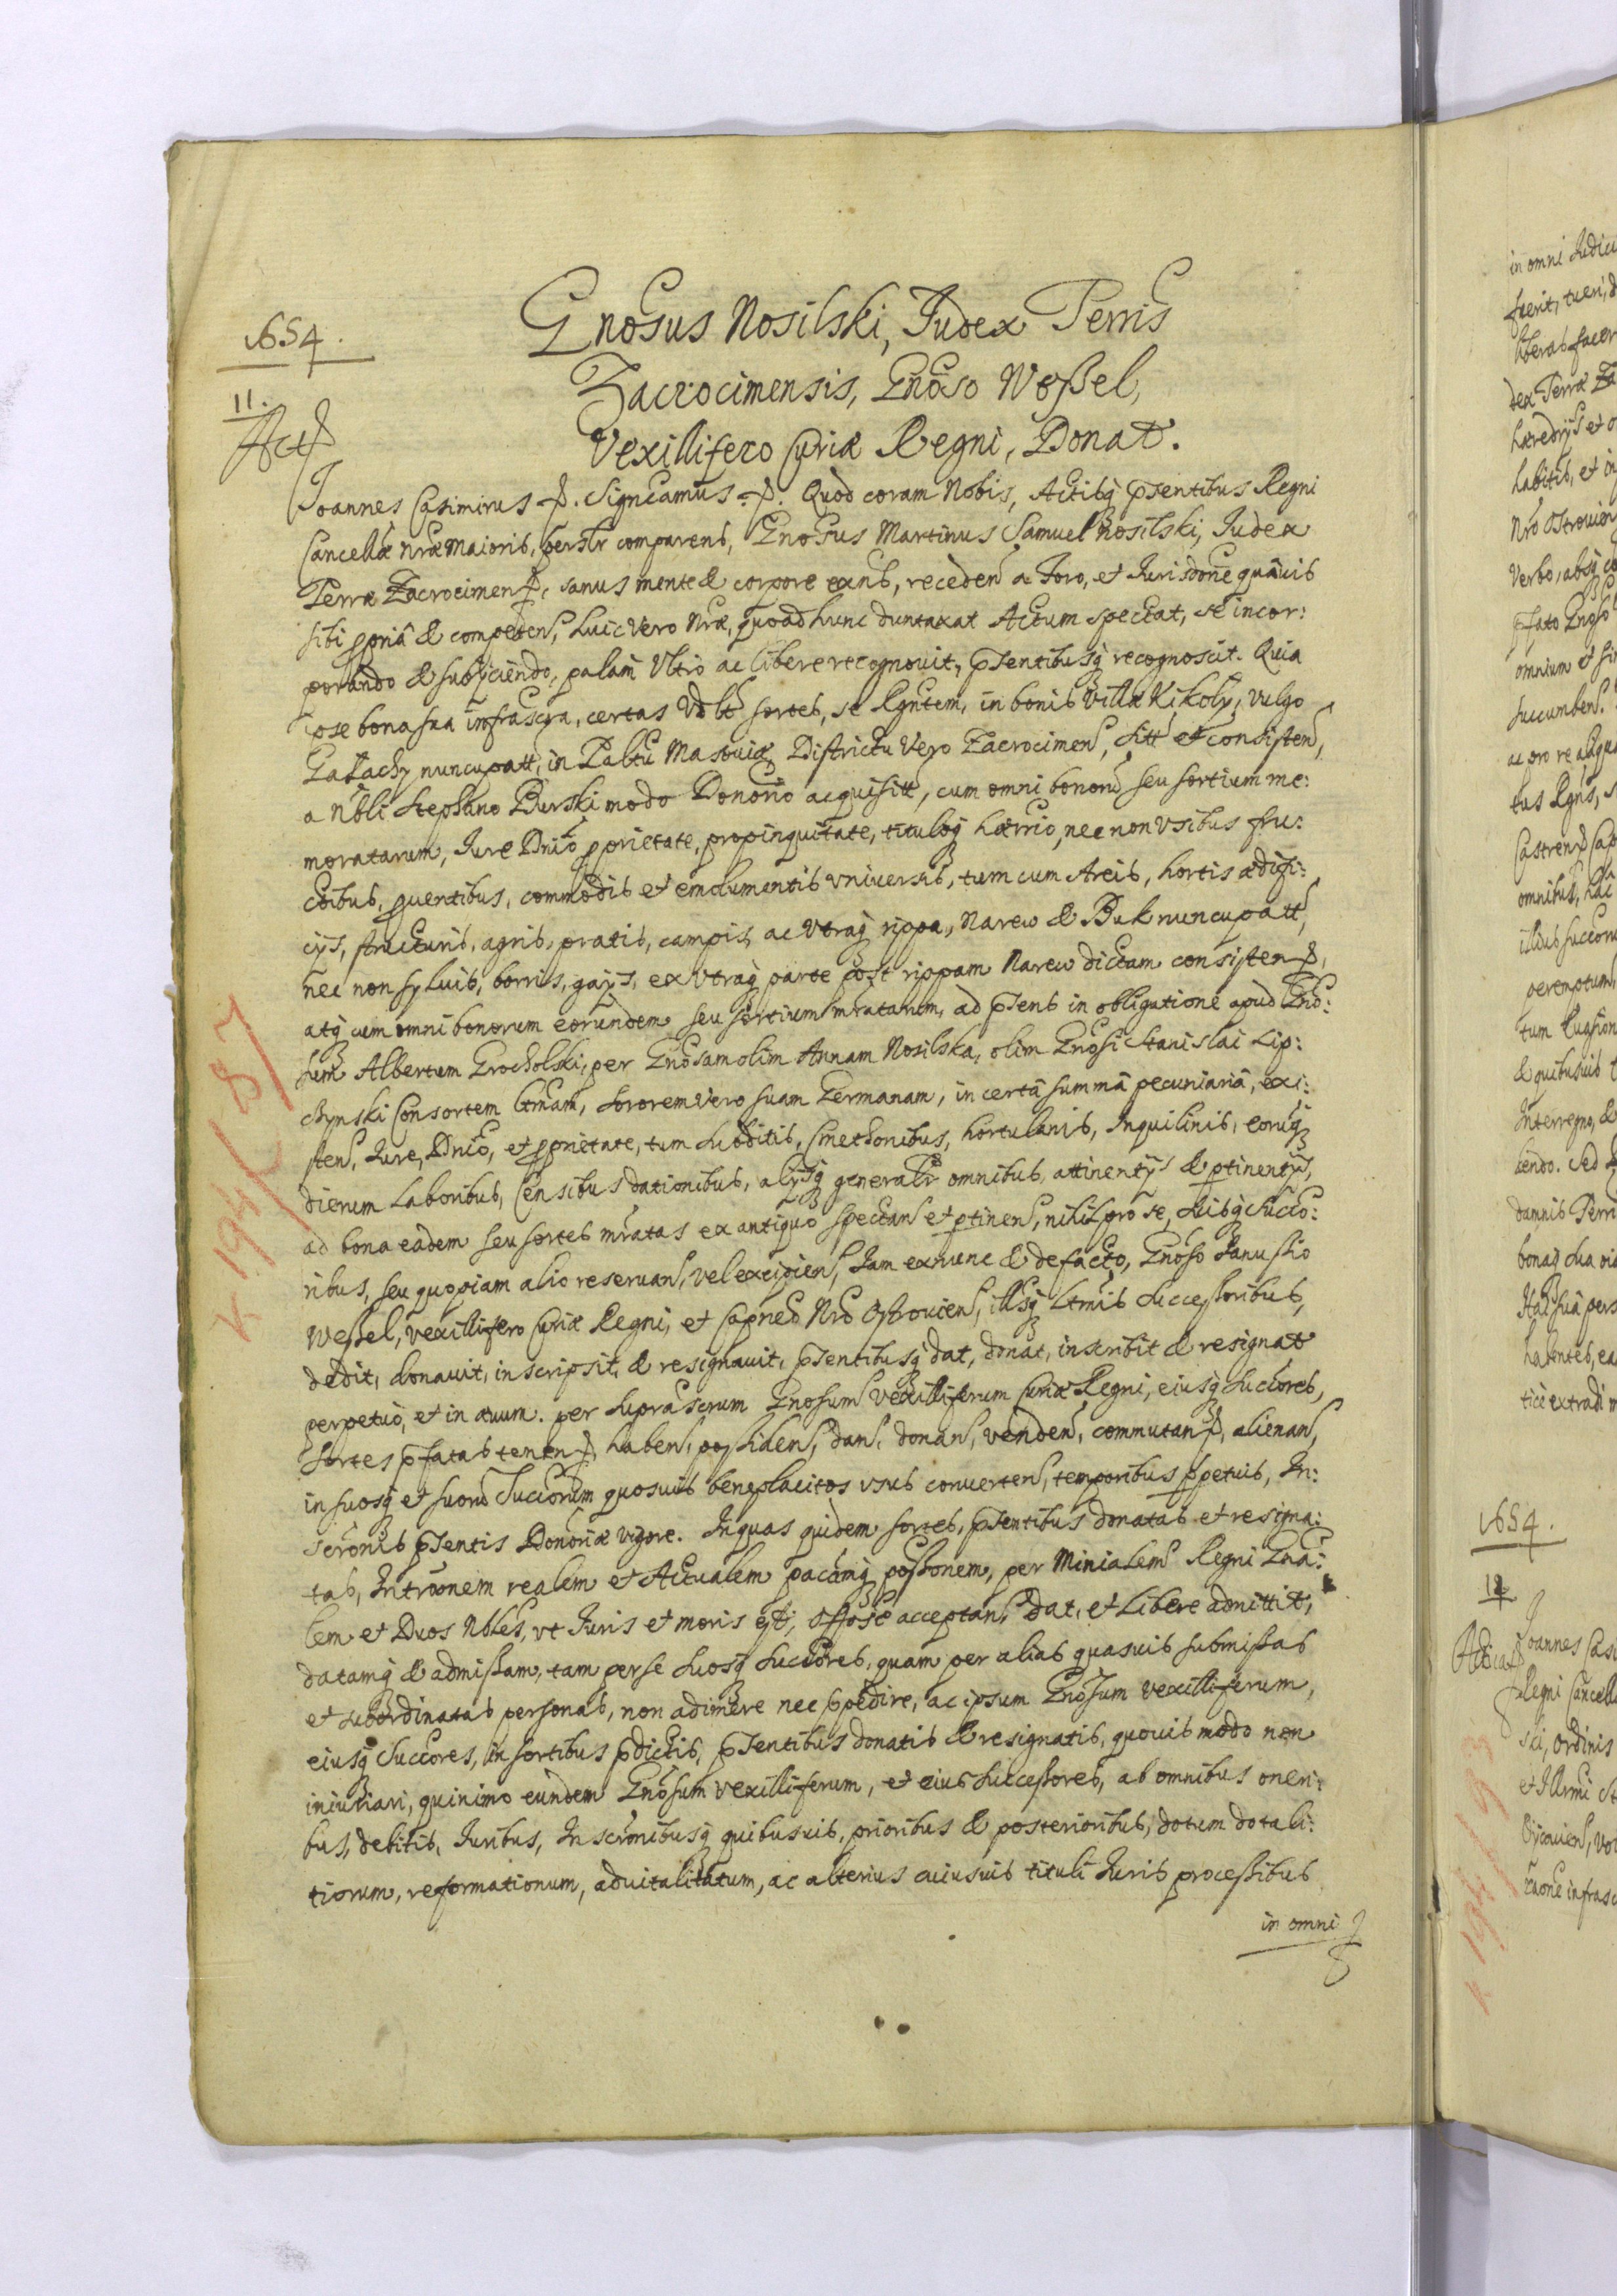 1654.
11.
Act
Gnosus Nosilski, Judex Terris
Zacrocimensis, Gnoso Weßel,
Vexillifero Curiæ Regni, Donat.
Joannes Casimirus. Signcamus. Quod coram Nobis, Actisq pntibus Regni
Cancellæ nræ Maioris, persnlr comparens, Gnosus Martinus Samuel Nosilski, Judex
Terræ Zacrocimen, sanus mente & corpore exns, receden a Foro, et Jurisdone quâvis
sibi ppriâ & competen, huic vero nræ, quoad hunc duntaxat Actum spectat, se incor:
porando & subijciendo, palam Ultrò ac libere recognovit, pntibusq recognoscit. Quia
ipse bona sua infrascpta, certas Vdlt sortes, se Rgntem, in bonis Villæ Kikoly, vulgo
Galachy nuncupatt, in Paltu Masouiæ, Districtu Vero Zacrocimen, sitt et consisten,
a Nbli Stephano Burski modo Donorio acquisitt, cum omni bonoru seu sortium me:
moratarum, Jure Dnio pprietate, propinquitate, tituloq hærrio, nec non Usibus fru:
ctibus, puentibus, commodis et emolumentis vniuersis, tum cum Areis, hortis ædifi:
cijs, structuris, agris, pratis, campis, ac Vtraq rippa, Narew & Buk nuncupatt,
nec non syluis, borris, gaijs, ex vtraq parte post rippam Narew dictam consisten,
atq cum omni bonorum eorundem seu sortium mratarum, ad pñs in obligatione apud Gno:
sum Albertum Grocholski, per Gnosam olim Annam Nosilska, olim Gnosi Stanislai Lip:
chynski Consortem ltmam, sororem vero suam Germanam, in certâ summâ pecuniariâ, exi:
sten, Jure, Dnio, et pprietate, tum subditis, Cmethonibus, hortulanis, Inquilinis, eorumq
dierum laboribus, Censibus dationibus, alijsq generalr omnibus, attinentijs & ptinentijs,
ad bona eadem seu sortes mratas ex antiquo spectan et ptinen, nihil pro se, suisq succo:
ribus, seu quopiam alio reseruan, vel excipien, Jam ex nunc & de facto, Gnoso Janussio
Weßel, vexillifero Curiæ Regni, et Capneo Nro Ostrouien, illiusq ltmis successoribus,
dedit, donauit, inscripsit, & resignauit, pntibusq dat, donat, inscribit & resignat
perpetuò, et in æuum. per suprascrum Gnosum Vexilliferum Curiæ Regni, eiusq succores,
sortes pfatas tenen, haben, possiden, dan, donan, venden, commutan, alienan,
in suosq et suoru succorum quosuis beneplacitos vsus conuerten, temporibus ppetuis, In:
scronis pntis Donoriæ vigore. In quas quidem sortes, pntibus donatas et resigna:
tas, Intronem realem et Actualem pacamq possonem, per Minialem Regni Gna:
lem et Duos Nbles, vt Juris et moris est, acceptan, dat, et libere admittit,
datamq & admissam, tam per se suosq succores, quam per alias quasuis submissas
et subordinatas personas, non adimere nec ppedire, ac ipsum Gnosum vexilliferum,
eiusq succores, in sortibus pdictis, pntibus donatis & resignatis, quouis modo non
iniuriari, quinimo eundem Gnosum vexilliferum, et eius successores, ab omnibus oneri:
bus, debitis, Juribus, Inscronibusq quibusuis, prioribus & posterioribus, dotum dotali:
tiorum, reformationum, aduitalitatum, ac alterius cuiusuis tituli Juris processibus
in omni
K 194/87
in omni Judici
fuerit, tueri,
liberas facer
dex Terræ Za
hæredijs et
habitis, et
Nro Ostrouien
Verbo, absq
pfato Gnoso
omnium et
succumben.
ac pro re
tus Rgnis,
Castren Cap
omnibus, hac
illius succoru
peremptum,
tum
& quibusuis
Interregno, &
bendo. sed
damnis Terr
bonaq sua
habentes, ea
tice extradi
1654.
12
Joannes Casi
Regni Cancella
sci, Ordinis
et Illrmi
infrasc
K 194/93